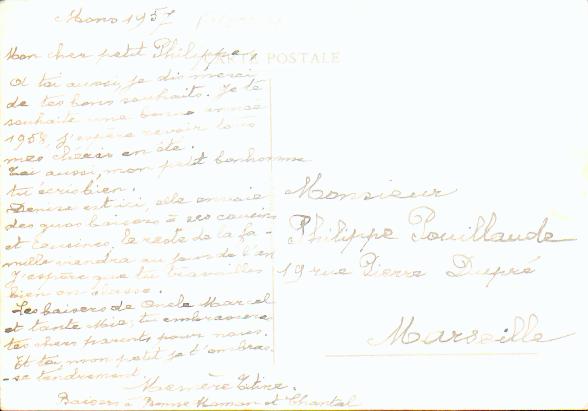 Mons 1957
CARTE POSTALE
Mon cher petit Philippe,
A toi aussi, je dis merci
de tes bons souhaits. Je te
souhaite une bonne année
1958, j'espère revoir tous
mes chéris en été.
Toi aussi, mon petit bonhomme
tu écris bien.
Denise est ici, elle envoie
des gros baisers à ses cousins
et cousines, le reste de la fa-
mille viendra au jour de l'an
J'espère que tu travailles
bien en classe.
Les baisers de Oncle Marcel
et tante Mia; tu embrasseras
tes chers parents pour nous.
Et toi, mon petit je t'embras-
-se tendrement.
Mémère Titine.
Baisers à Bonne Maman et Chantal
Monsieur
Philippe Pouillaude
19 rue Pierre Dupré
Marseille